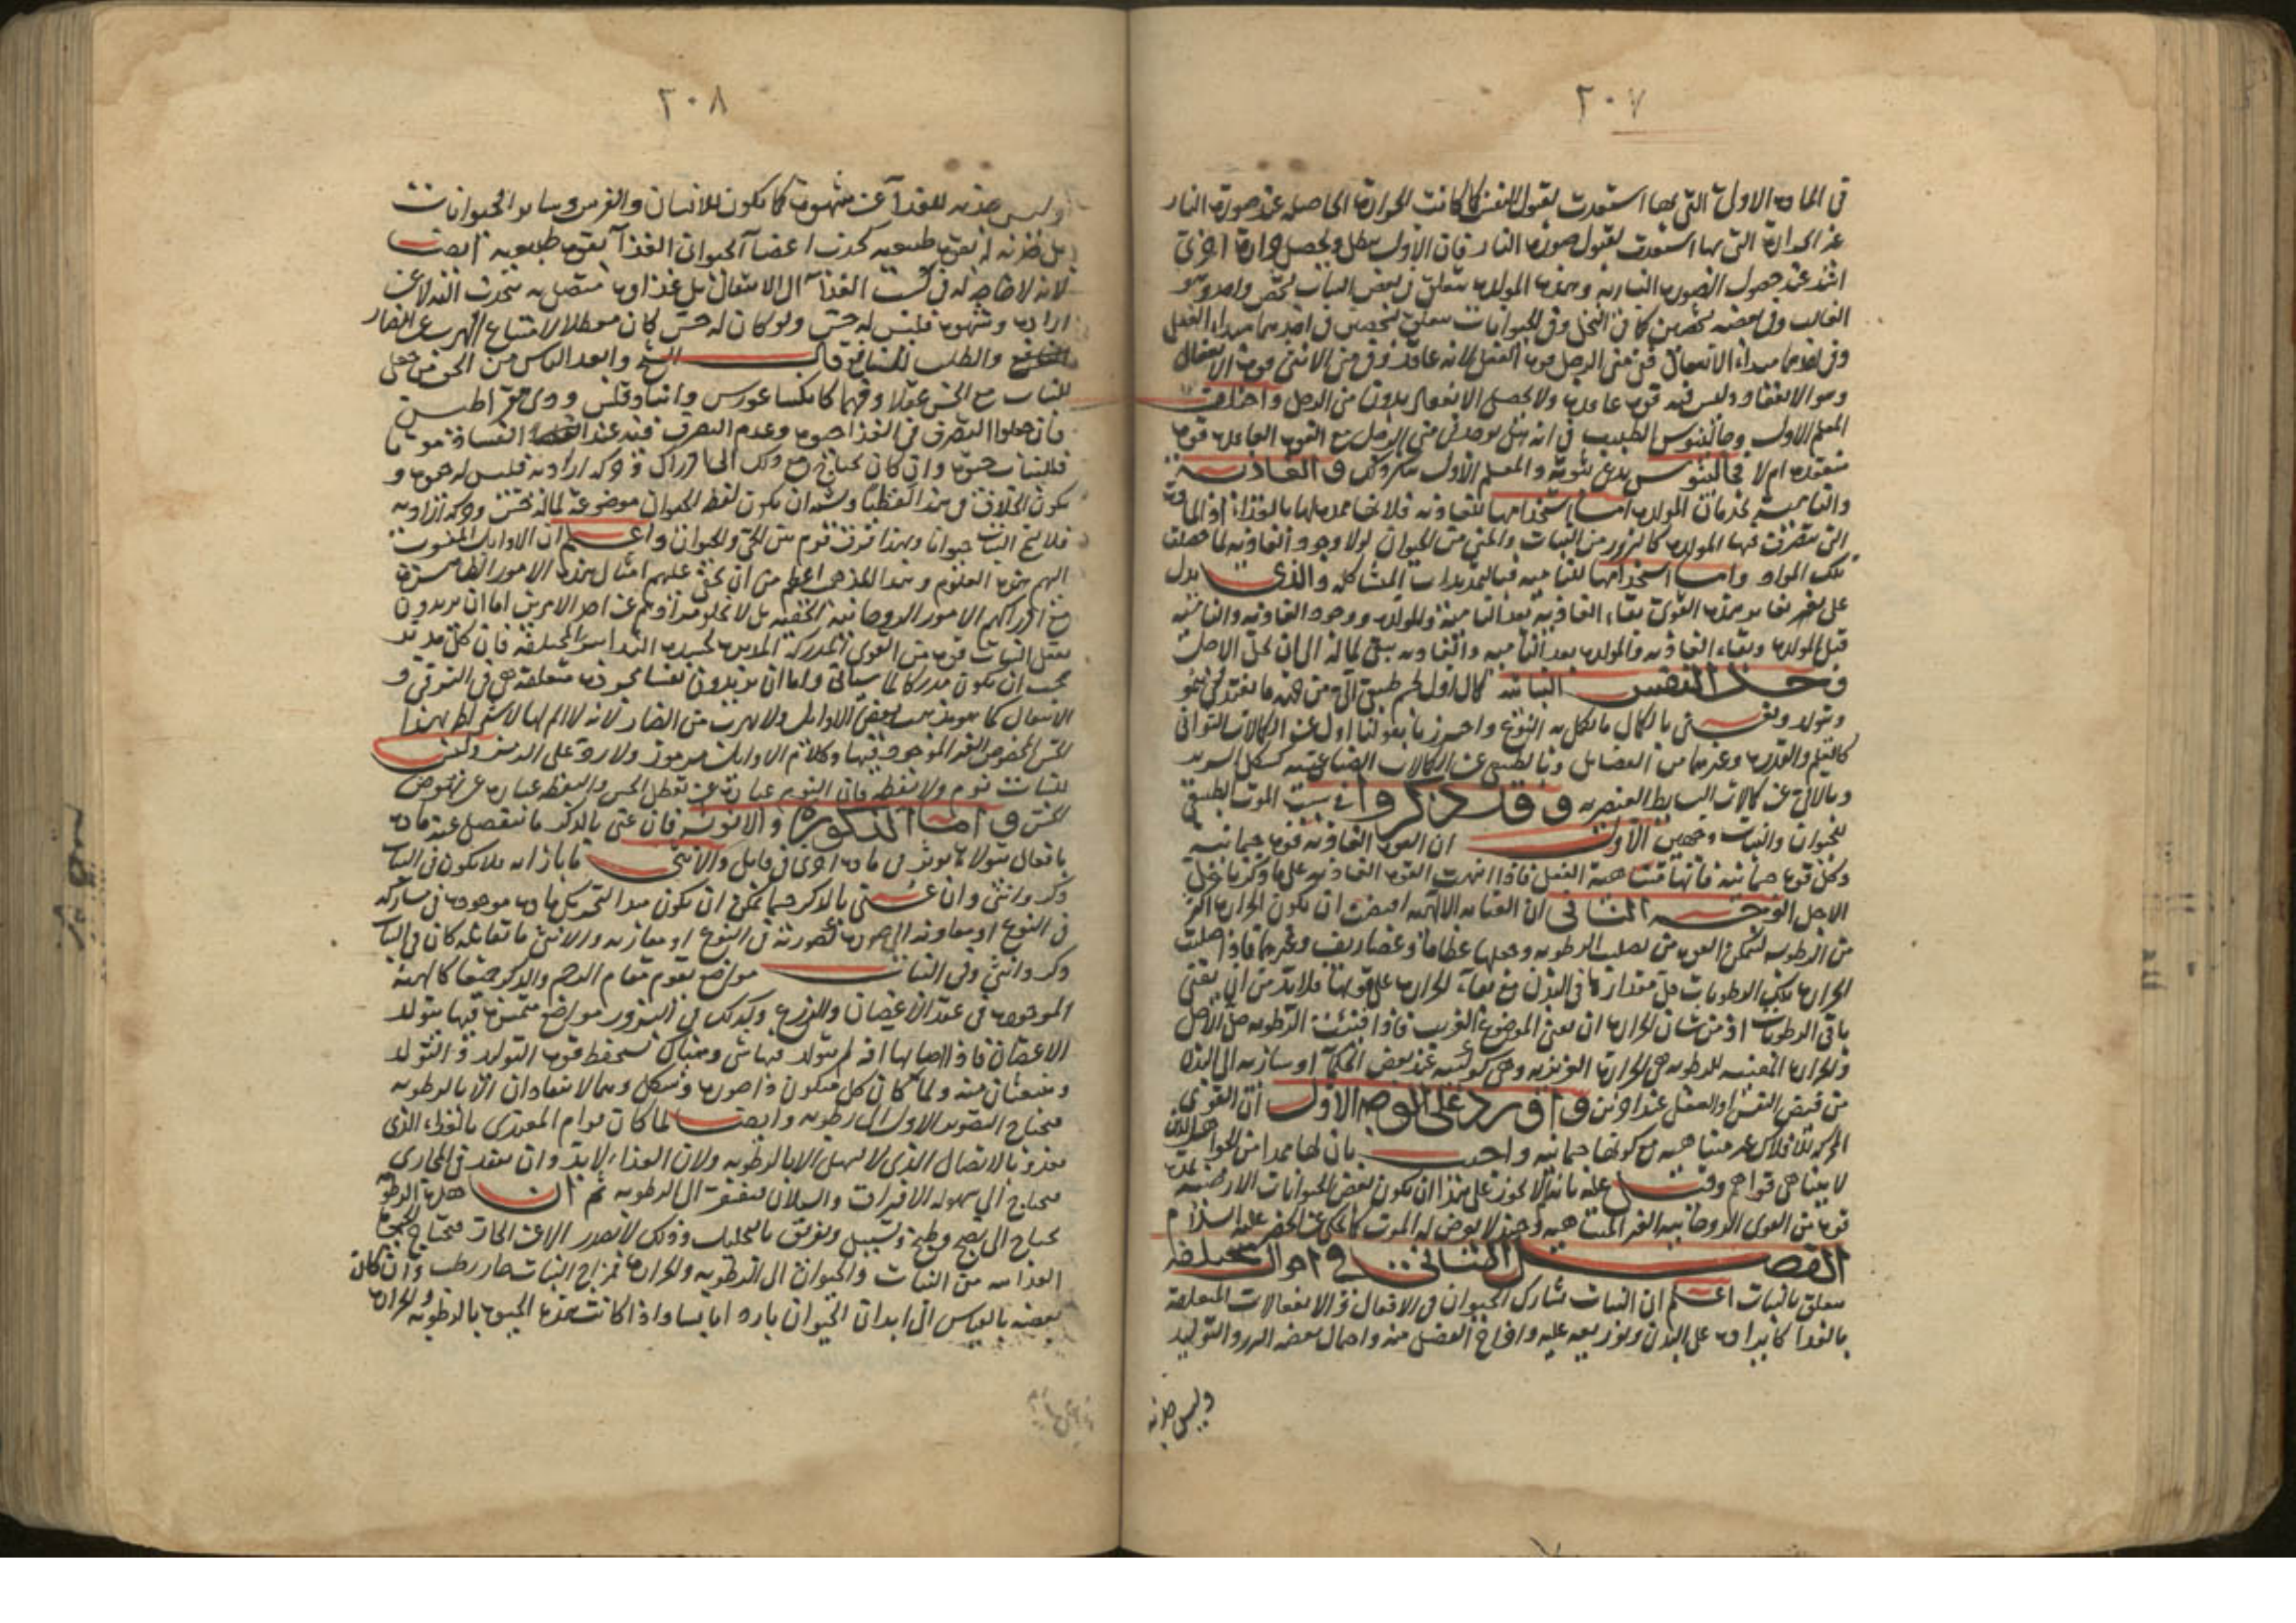 ٢٠٧
في المادة الاولى التي بها استعدت لقبول النفس كما كانت الحرارة الحاصلة عند صورة النار
غير الحرارة التي بها استعدت لقبول صورة النار فان الاولى تبطل ويحصل حرارة اخرى
اشد عند حصول الصورة النارية وهذه المولدة تتعلق في بعض النبات بشخص واحد وهو
الغالب وفي بعضه بشخصين كما في النخل وفي الحيوانات تتعلق بشخصين في احدهما مبداء الفعل
وفي احدهما مبداء الانفعال ففي مني الرجل قوة الفعل لانه عاقد وفي مني الانثى قوة الانفعال
وهو الانعقاد وليس فيه قوة عاقدة ولا يحصل الانعقاد بدون مني الرجل واختلف
المعلم الاول وجالينوس الطبيب في انه هل يوجد في مني الرجل مع القوة العاقدة قوة
منعقدة ام لا فجالينوس يدعي ثبوته والمعلم الاول ينكر ذلك والغاذية
والنامية تخدمان المولدة اما استخدامها للغاذية فلانها ممدة لها بالغذاء اذ المادة
التي تتصرف فيها المولدة كالبزور من النبات والمني من الحيوان لولا وجود الغاذية لما حصلت
تلك المواد واما استخدامها للنامية فبالتمديدات المشاكلة والذي يدل
على تغاير هذه القوى بقاء الغاذية بعد النامية والمولدة ووجود الغاذية والنامية
قبل المولدة وبقاء الغاذية والمولدة بعد النامية والغاذية تبقى لماله الى ان يحل الاجل
وحد النفس النباتية كمال اول لجسم طبيعي آلي من جهة ما يغتذي وينمو
ويتولد ونعني بالكمال ما يكمل به النوع واحترزنا بقولنا اول عن الكمالات الثواني
كالعلم والقدرة وغيرهما من الفضايل وبالطبيعي عن الكمالات الصناعية كشكل السرير
وبالآلي عن كمالات البسايط العنصرية وقد ذكروا في سبب الموت الطبيعي
للحيوان والنبات وجهين الاول ان القوة الغاذية قوة جسمانية
وكل قوة جسمانية فانها متناهية الفعل فاذا انتهت القوة الغاذية على ما ذكرنا حل
الاجل الوجه الثاني ان العناية الالهية اقتضت ان يكون الحرارة اكثر
من الرطوبة لتتمكن القوة من تصليب الرطوبة وجعلها عظاما وغضاريف وغيرهما فاذا صلبت
الحرارة تلك الرطوبات قل مقدارها في البدن مع بقاء الحرارة على قوتها فلا بد من ان تفنى
باقي الرطوبات اذ من شان الحرارة ان تفني الموضوع القريب فاذا فنيت الرطوبة حل الاجل
والحرارة المفنية للرطوبة هي الحرارة الغريزية وهي كوكبية عند بعض الحكماء او سارية الى البدن
من فيض النفس او العقل عند اخرين واورد على الوجه الاول ان القوى
المحركة للافلاك غير متناهية مع كونها جسمانية واجيب بان لها ممدا من الجواهر التي
لا يتناهى قواهم وقيل عليه بانه لا يجوز على هذا ان يكون بعض الحيوانات الارضية
قوة من القوى الروحانية الغير المتناهية وحينئذ لا يعرض له الموت كما حكي عن الخضر عليه السلام
الفصل الثاني في احوال مختلفة
تتعلق بالنبات اعلم ان النبات يشارك الحيوان في الافعال والانفعالات المتعلقة
بالغذاء كايراده على البدن وتوزيعه عليه واخراج الفضل منه واحمال بعضه البزر والتوليد
وليس جذبه
٢٠٨
وليس جذبه للغذاء عن شهوة كما يكون للانسان والفرس وسائر الحيوانات
بل جذبه له بقوة طبيعية كجذب اعضاء الحيوان الغذاء بقوة طبيعية ايضا
لانه لا حاجة له في طلب الغذاء الى الانتقال بل غذاوه متصل به ينجذب اليه لا عن
ارادة وشهوة فليس له حس ولو كان له حس كان معطلا لامتناع الهرب عن الضار
والطلب للنافع قال الشيخ وابعد الناس من الحق من جعل
للنبات مع الحس عقلا وفهما كانكساغورس وانباذقلس وذي مقراطيس
فان جعلوا التصرف في الغذاء حيوة وعدم التصرف فيه عند الفساد موتا
فللنبات حيوة وان كان يحتاج مع ذلك الى ادراك وحركة ارادية فليس له حيوة و
يكون الخلاف في هذا لفظيا ويشبه ان يكون لفظ الحيوان موضوعة لماله حس وحركة ارادية
فلا يقع النبات حيوانا وبهذا فرق قوم بين الحي والحيوان واعلم ان الاوايل المنسوب
اليهم هذه العلوم وهذا المذهب اعظم من ان يخفى عليهم امثال هذه الامور الظاهرة
مع ادراكهم الامور الروحانية الخفية بل لا يخلو مرادهم عن احد الامرين اما ان يريدون
بعقل النبات قوة من القوى المدركة المدبرة لجسده التدابير المختلفة فان كل مدبر
يجب ان يكون مدركا لما سياتي واما ان يريدون نفسا مجردة متعلقة هي في الترقي و
الانتقال كما هو مذهب بعض الاوايل ولا يهرب من الضار لانه لا الم لها لاشتراط بهذا
الحس المخصوص الغير الموجود فيها وكلام الاوايل مرموز ولا رد على الرمز وليس
للنبات نوم ولا يقظة فان النوم عبارة عن تعطل الحس واليقظة عبارة عن نهوض
الحس واما الذكورة والانوثة فان عني بالذكر ما ينفصل عنه مادة
بافعال متولاة يوثر في مادة اخرى في قابل والانثى ما بازايه فلا يكون في النبات
ذكر وانثى وان عني بالذكر جسما يمكن ان يكون مبدا لتحريك مادة موجودة في مشاركه
في النوع او معاونه الى صورة كصورته في النوع او مقاربه والانثى ما تقابله كان في النبات
ذكر وانثى وفي النبات مواضع يقوم مقام الرحم والذكر جميعا كالهيئة
الموجودة في عقد الاغصان والزرع وكذلك في البزور مواضع متميزة فيها يتولد
الاغصان فاذا اصابها افة لم يتولد منها شئ وهناك يستحفظ قوة التوليد والتولد
وتنبعثان منه ولما كان كل متكون ذا صورة وشكل وهما لا تنقادان الا بالرطوبة
فيحتاج التصوير الاول الى رطوبة وايضا لما كان قوام المغتذي بالغذاء الذي
نفوذه بالاتصال الذي لا يسهل الا بالرطوبة ولان الغذاء لا بد وان ينفذ في المجاري
فيحتاج الى سهولة الانجراف والسيلان فيفتقر الى الرطوبة ثم ان هذه الرطوبة
يحتاج الى نضج وطبخ وتسييل وتفريق بالتحليل وذلك لا يصدر الا عن الحار فيحتاج الجسم
الغذائية من النبات والحيوان الى الرطوبة والحرارة فمزاج النبات حار رطب وان كان
بعضه بالقياس الى ابدان الحيوان باردا يابسا واذا كانت هذه الحيوة بالرطوبة والحرارة